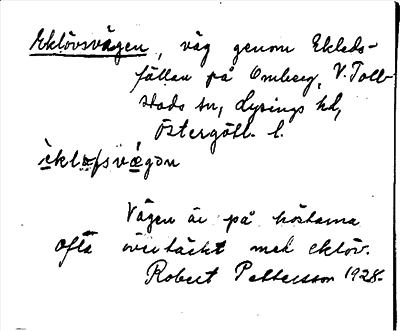 Eklövsvägen, väg genom Ekleds-
fällan på Omberg, V. Toll-
stads sn, Lysings hd,
Östergötl. l.
èkləfsvǽgən
Vägen är på höstarna
ofta övertäckt med eklöv.
Robert Pettersson 1928.